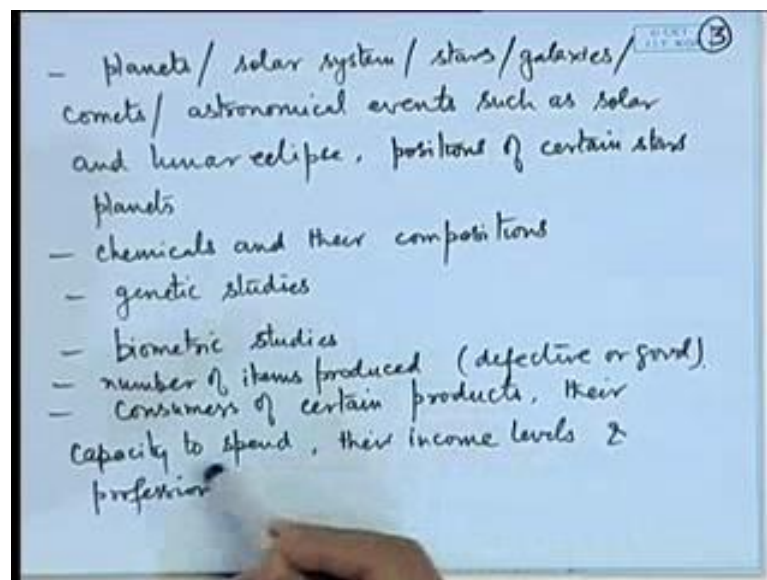 3
- planets/ solar system/ stars/galaxies/
comets/ astronomical events such as solar
and lunar eclipse, positions of certain stars
planets
- chemicals and their compositions
- genetic studies
- biometric studies
- number of items produced (defective or good).
- Consumers of certain products, their
capacity to spend, their income levels &
profession